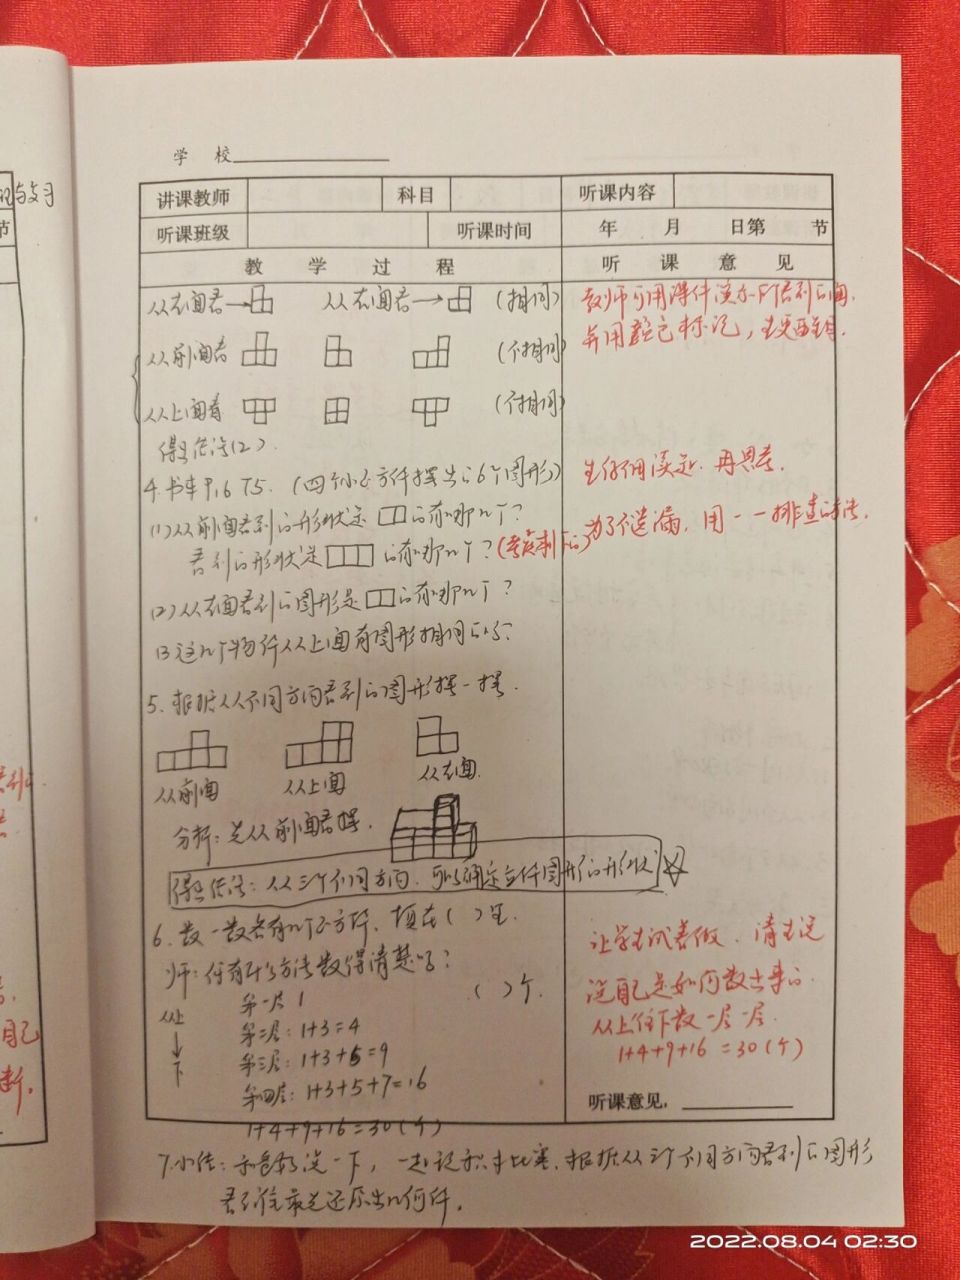 学 校
讲课教师 科目 听课内容
听课班级 听课时间 年 月 日第 节
教 学 过 程 听 课 意 见
从左面看 从右面看 (相同)
从前面看 (不相同)
从上面看 (不相同)
得出结论(2).
4.书本P16 T5. (四个小正方体摆出的6个图形)
(1)从前面看到的形状是 的有哪几个?
看到的形状是 的有哪几个?
(2)从右面看到的图形是 的有哪几个?
(3 这几个物体从上面看图形相同吗?
5.根据从不同方向看到的图形摆一摆.
从前面 从上面 从右面.
分析:先从前面看摆.
得出结论:从三个不同方向,可以确定立体图形的形状
6.数一数各有几个正方体,填在( )里.
师:你有什么方法数得清楚吗?
( )个.
从上
下
第一层 1
第二层:1+3=4
第三层:1+3+5=9
第四层:1+3+5+7=16
1+4+9+16=30(个)
教师可用课件演示所看到的面.
并用颜色标记,
生仔细读题.再思考.
为了不遗漏,用一一排查的方法.
让学生试着做.请生说
说自己是如何数出来的
从上往下数一层一层.
1+4+9+16=30(个)
听课意见:
7.小结: 一下,一起 比赛.根据从三个不同方向看到的图形
看谁最先还原出几何体.
与复习
节
自己
2022.08.04 02:30